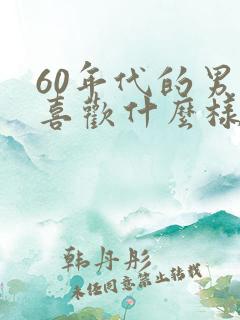 60年代的男
喜歡什麼樣
韩丹彤
未经同意禁止转载